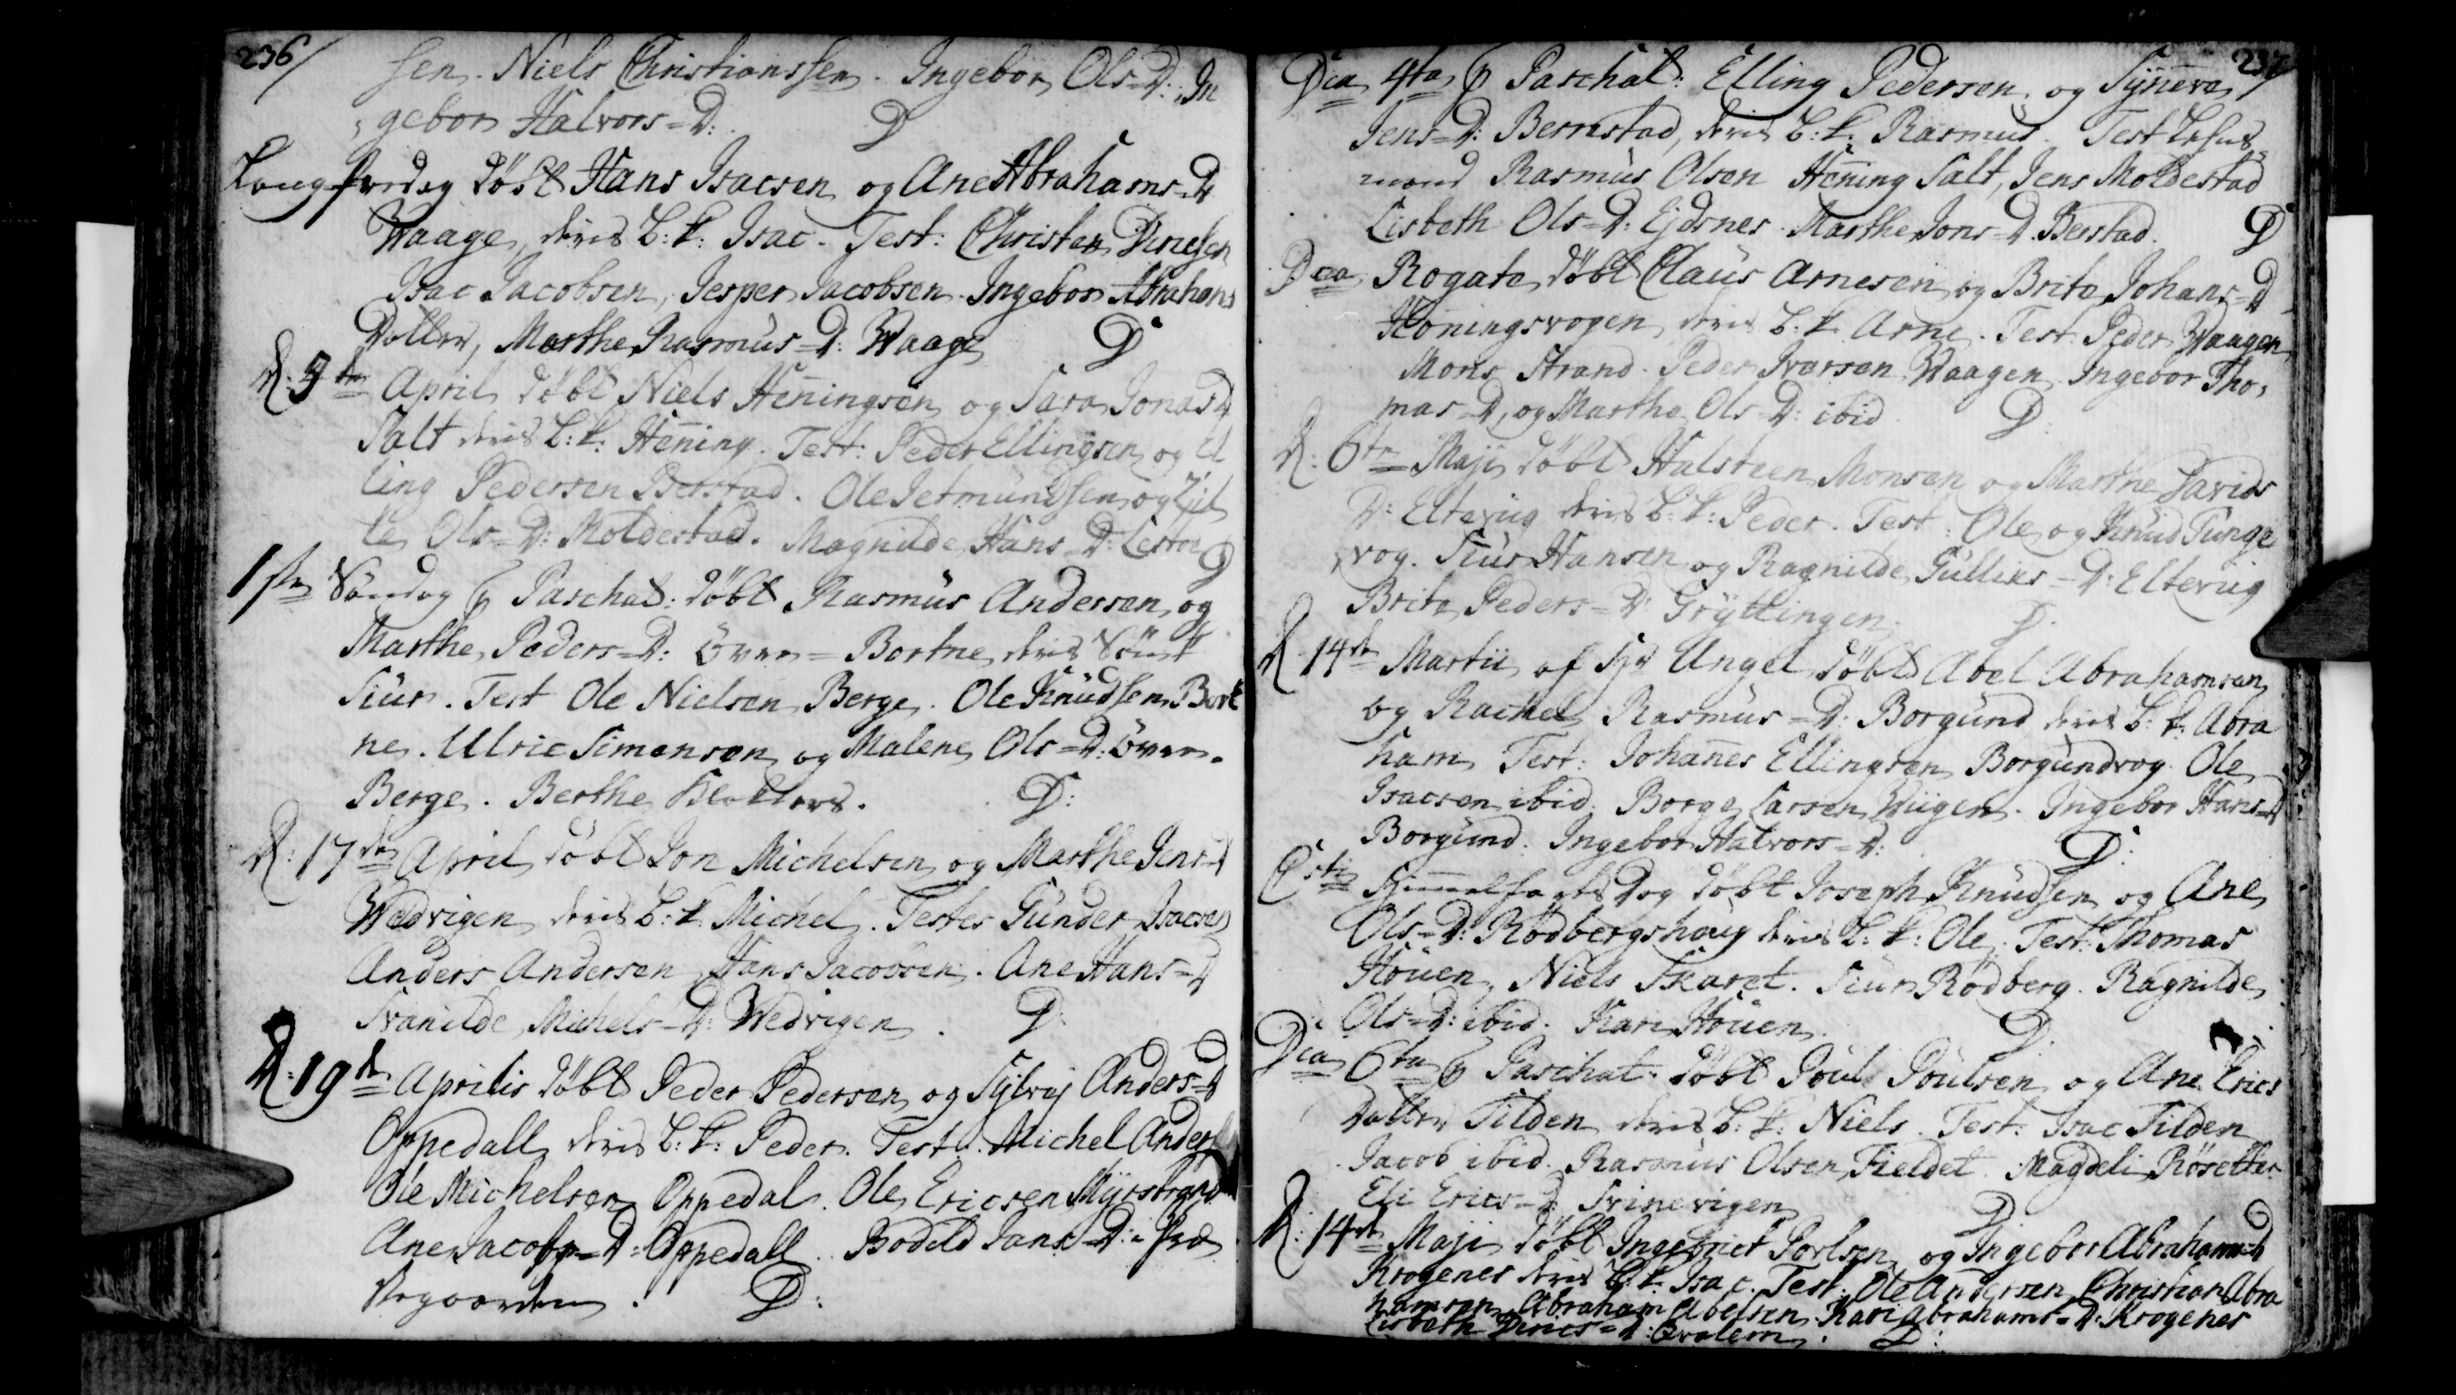 236/
sen. Niels Christianssen. Ingebor Ols-D:, In
gebor Halvors-D: D
Langfredag döbt Hans Isacsen og Ane Abrahams-D
Waage, deris B: k: Isac. Test: Christen
Isac Jacobsen, Jesper Jacobsen. Ingebor Abrahams
Dotter, Marthe Rasmus-D: Waage D
April döbt Niels Henningsen og Sara Jonas D
Salt deris B: k: Henning. Test: Peder Ellingsen og El
ling Pedersen Berstad. Ole Jetmundsen og
te Ols-D: Moldestad. Magnilde Hans-D: D
1ste Söndag p Paschat: döbt Rasmus Andersen og
Marthe Peders-D: Övre-Bortne deris
Siur. Test Ole Nielsen Berge. Ole Knudsen Bort
ne. Ulric Simensen og Malene Ols-D: Övre-
Berge. Berthe D:
D: 17de April döbt Jon Michelsen og Marthe Jens-D
Wedvigen deris B: k Michel. Testes Gunder Isacsen
Anders Andersen Hans Jacobsen. Ane Hans-D
Svanilde Michels-D: Wedvigen. D:
D: 19de Aprilis döbt Peder Pedersen og Sÿlvej Anders-D
Oppedall deris B: k: Peder. Test: Michel Anders
Ole Michelsen Oppedal. Ole Ericsen
Ane Jacobs-D: Oppedall. Bodild Jans-D:
D:
237/
Dca 4ta p Paschat: Elling Pedersen og Sÿneva
Jens-D: Bernstad, deris B: k: Rasmus. Test
mand Rasmus Olsen Henning Salt, Jens Moldestad
Lisbeth Ols-D: Ejdsnes. Marthe Jons-D. Berstad. D
Dca Rogate döbt Claus Arnesen og Brite Johans-D
Honingsvogen deris B: k Arne. Test. Peder Waagen
Mons Strand. Peder Ivarsen Waagen. Ingebor Tho,
mas-D, og Marthe Ols-D: ibid D
D: 6te Maji döbt Halsteen Monsen og Marthe Davids
D: Eltevig deris B: k: Peder. Test: Ole og Knud Tunge
vog. Siur Hansen og Ragnilde Gulliks-D: Eltevig
Brite Peders-D: Grÿttingen. D:
D 14de Martii af Sjr Ungel döbt Abel Abrahamsen
og Rachel Rasmus-D: Borgund deris B: k: Abra
ham Test: Johannes Ellingsen Borgundvog. Ole
Isacsen ibid. Borge Larsen Wiigen. Ingebor Hans-D
Borgund. Ingebor Halvors-D: D:
Csti Himmelfarts Dag döbt Joseph Knudsen og Ane
Ols-D: Rödbergshoug deris B: k: Ole. Test: Thomas
Houen, Niels Skaret. Siur Rödberg. Ragnilde
Ols-D: ibid. Kari Houen. D:
Dca 6ta p Paschat: döbt Poul Poulsen og Ane Erics
Dotter Tilden deris B: k: Niels. Test: Isac Tilden
Jacob ibid. Rasmus Olsen Fieldet. Magdeli
Eli Erics-D Svinevigen D
D: 14de Maji döbt Ingebrict og Ingebor Abrahams-D
Krogenes deris B: k: Isac. Test: Ole Andersen Christian Abra
hamsen. Abraham Abelsen. Kari Abrahams-D: Krogenes
Lisbeth D: